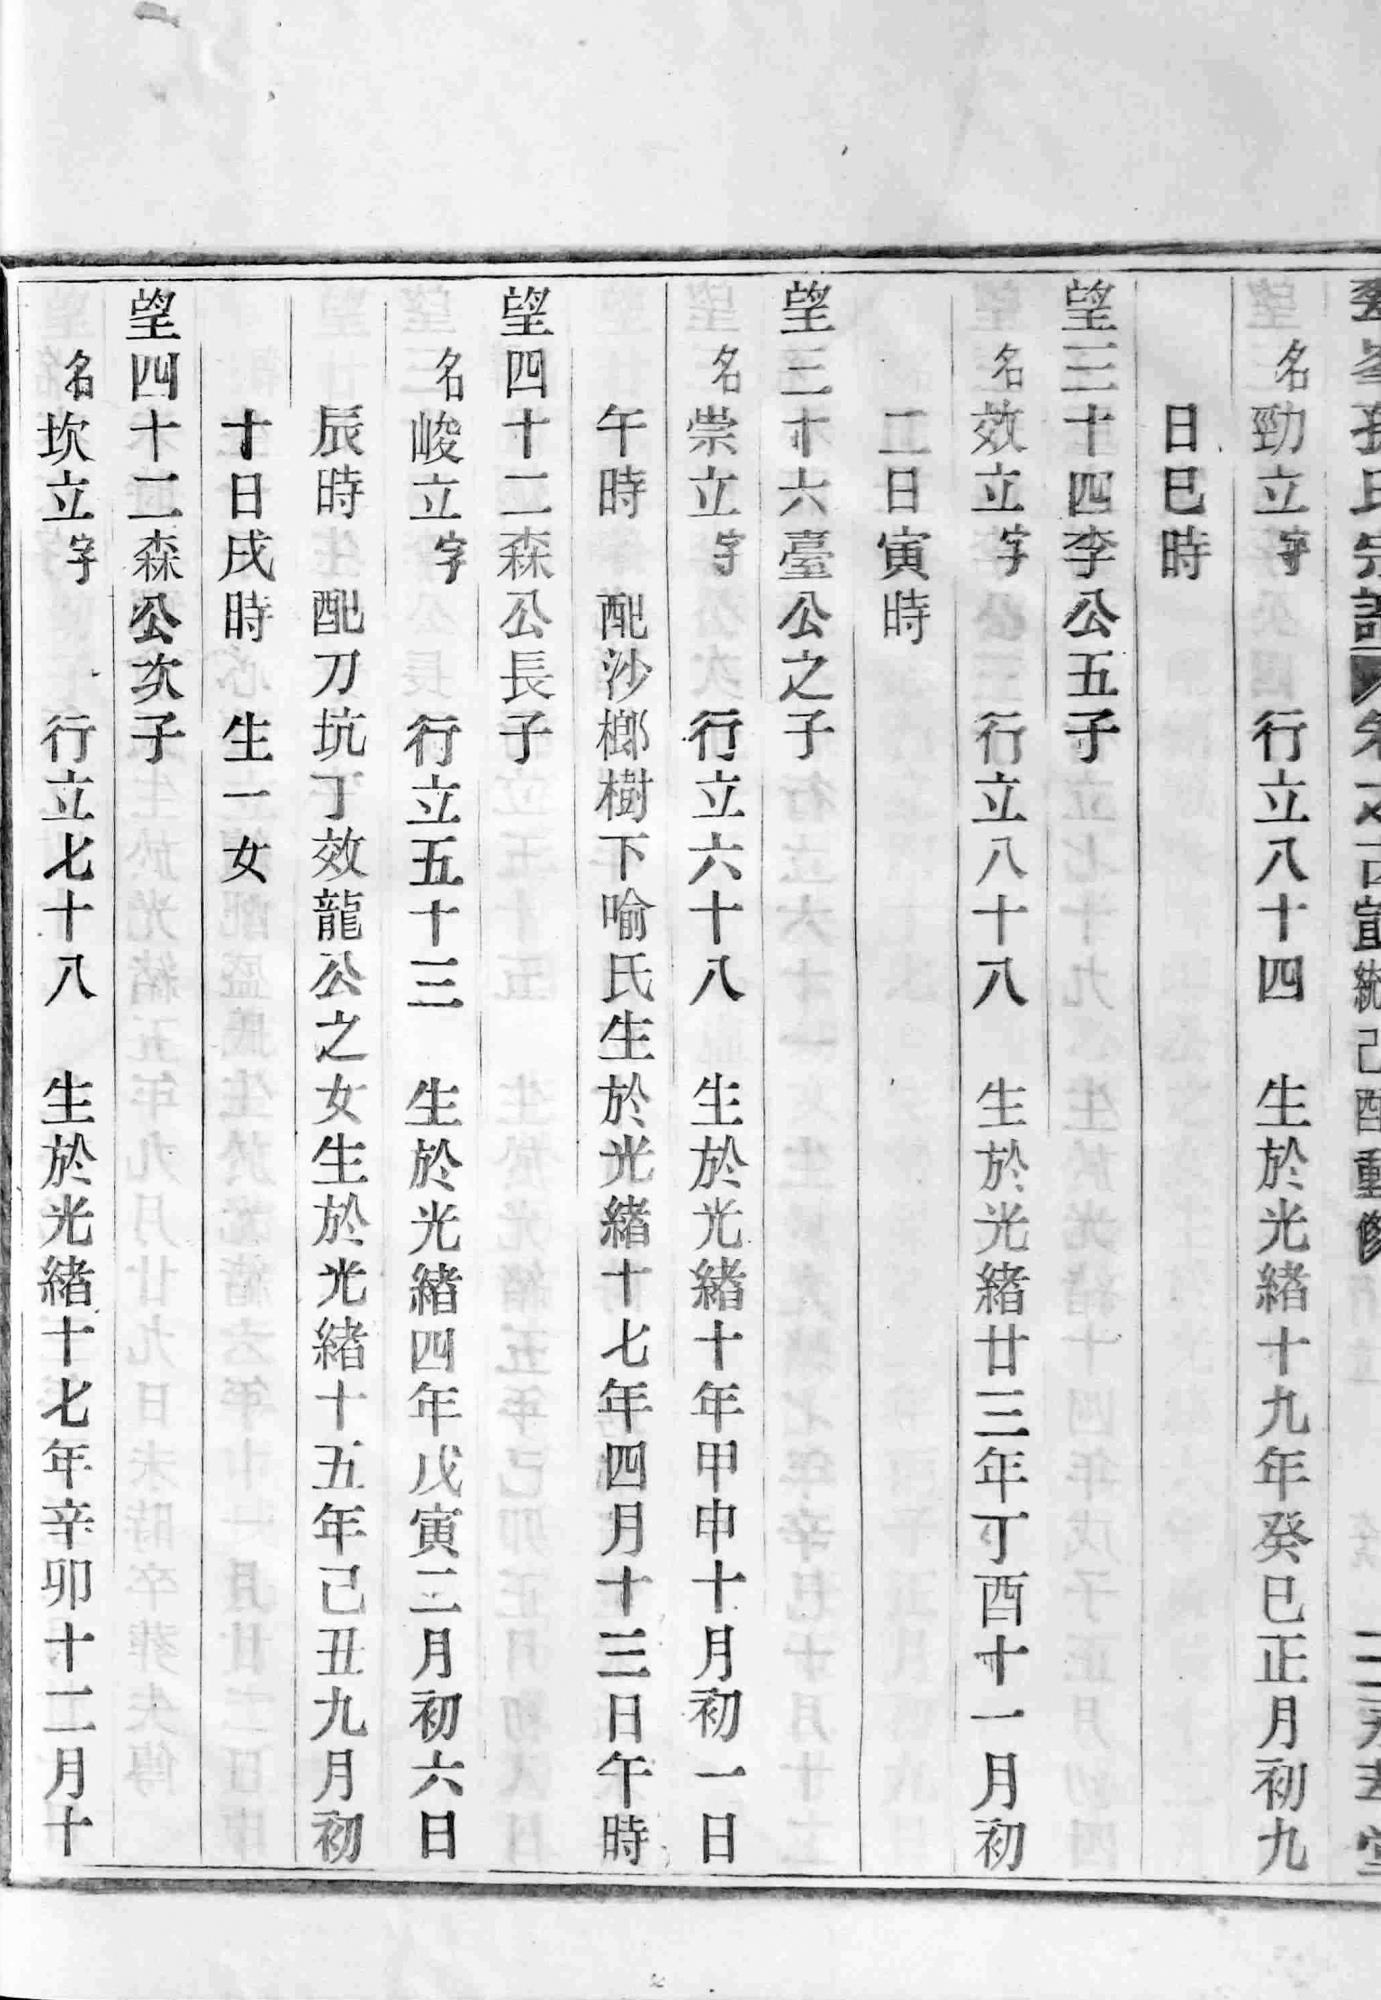 孫氏宗譜 卷之 宣統己酉重修
名勁立字 行立八十四 生於光緒十九年癸巳正月初九
日巳時
望三十四李公五子
名效立字 行立八十八 生於光緒廿三年丁酉十一月初
二日寅時
望三十六臺公之子
名崇立字 行立六十八 生於光緒十年甲申十月初一日
午時 配沙榔樹下喻氏生於光緒十七年四月十三日午時
望四十二森公長子
名峻立字 行立五十三 生於光緒四年戊寅二月初六日
辰時 配刀坑丁效龍公之女生於光緒十五年己丑九月初
十日戌時 生一女
望四十二森公次子
名坎立字 行立七十八 生於光緒十七年辛卯十二月十